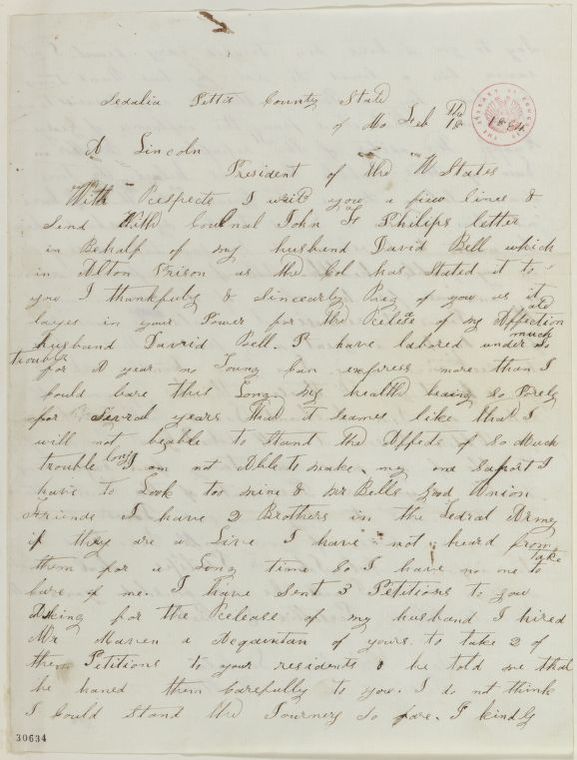 Sedalia Pettis County State
of Mo Feb The 18 1864
A Lincoln
President of the U States
With Respects I writ you a fiew lines &
Send With Coulnal John F Philips letter
in Behalf of my husband David Bell which
in Alton Prison as the Col has Stated it to
you I thankfuly & Sincerely Prey of you as it
layes in your Power for the Releas of my Affectionate
husband David Bell. I have labored under So much
trouble for A year no Toung can express more than I
could bare this Long my health being So Porely
for Sevral years that it seames like that I
will not beable to Stand the Affects of So Much
trouble long I am not Able to make my one Saport I
have to Look too mine & Mr Bells good Union
Friends I have 2 Brothers in the Fedral Army
if they are a Live I have not heard from
them for a Long time So I have no one to take
care of me. I have Sent 3 Petitions to you
Asking for the Release of my husband I hired
Mr a Acquaintan of yours to take 2 of
them Petitions to your residents & he told me that
he haned them Carefully to you. I do not think
I could Stand the Journey So fare. I kindly
30634